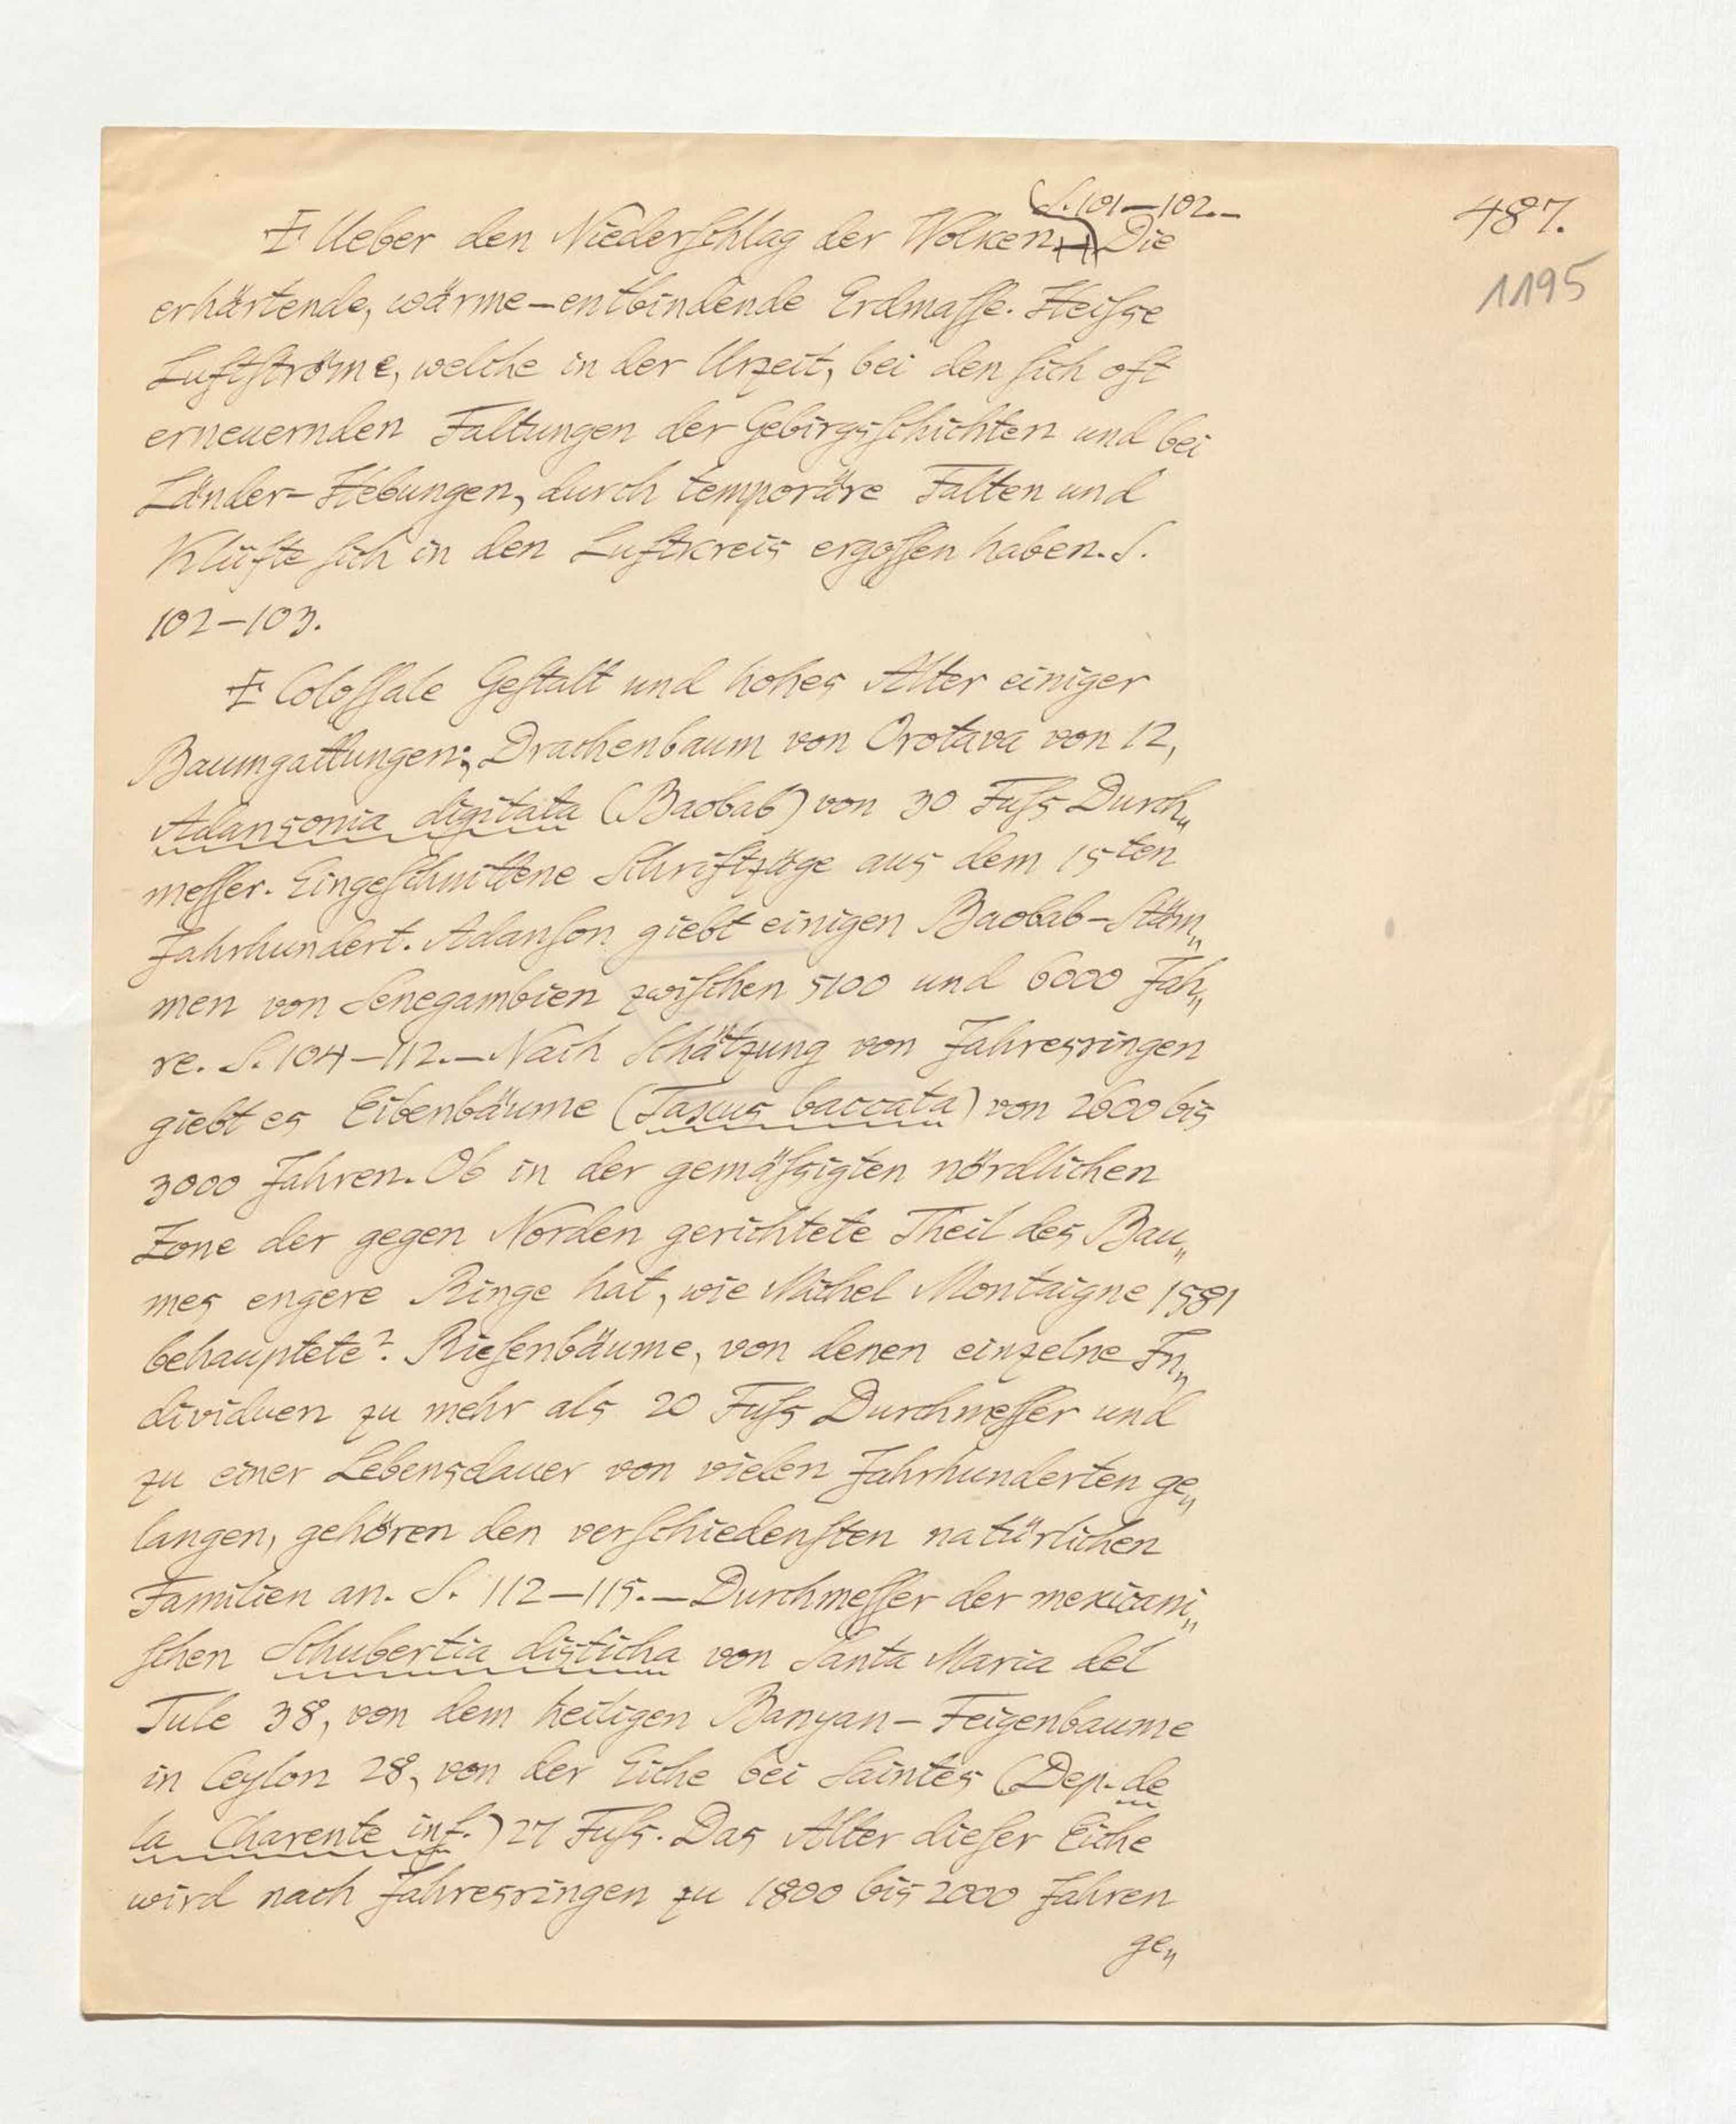 S. 101–102.–
487.
1195
‡ Ueber den Niederſchlag der Wolken. Die
erhärtende, wärme–entbindende Erdmaſſe. Heiſse
Luftſtröme, welche in der Urzeit, bei den ſich oft
erneuernden Faltungen der Gebirgsſchichten und bei
Länder-Hebungen, durch temporäre Falten und
Klüfte ſich in den Luftkreis ergoſſen haben. S.
102–103.
‡ Coloſſale Geſtalt und hohes Alter einiger
Baumgattungen; Drachenbaum von Orotava von 12,
Adansonia digitata (Baobab) von 30 Fuſs Durch„
meſſer. Eingeſchnittene Schriftzüge aus dem 15ten
Jahrhundert. Adanſon giebt einigen Baobab–Stäm„
men von Senegambien zwiſchen 5100 und 6000 Jah„
re. S. 104–112.–Nach Schätzung von Jahresringen
giebt es Eibenbäume (Taxus baccata) von 2600 bis
3000 Jahren. Ob in der gemäſsigten nördlichen
Zone der gegen Norden gerichtete Theil des Bau„
mes engere Ringe hat, wie Michel Montaigne 1581
behauptete? Rieſenbäume, von denen einzelne In„
dividuen zu mehr als 20 Fuſs Durchmeſſer und
zu einer Lebensdauer von vielen Jahrhunderten ge„
langen, gehören den verſchiedenſten natürlichen
Familien an. S. 112–115.–Durchmeſſer der mexicani„
ſchen Schubertia disticha von Santa Maria del
Tule 38, von dem heiligen Banyan–Feigenbaume
in Ceylon 28, von der Eiche bei Saintes (Dep. de
la Charente inf.) 27 Fuſs. Das Alter dieſer Eiche
wird nach Jahresringen zu 1800 bis 2000 Jahren
ge„